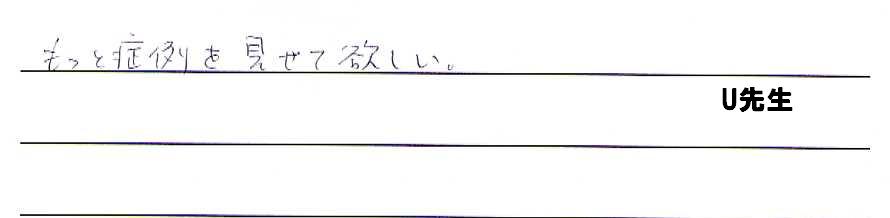 もっと症例を見せて欲しい。
U先生